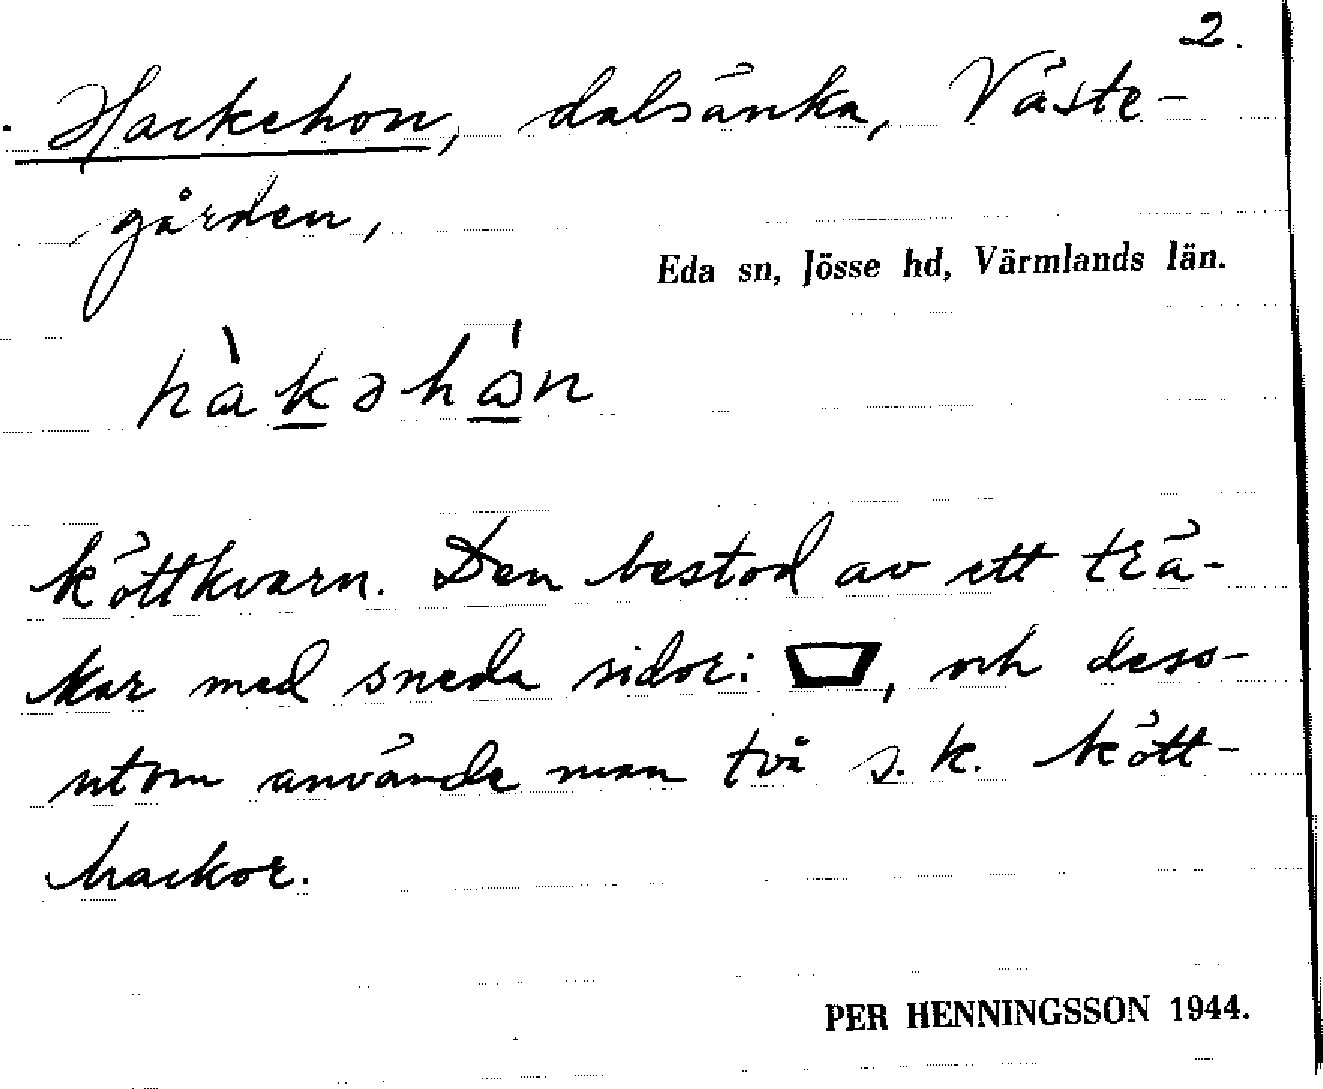 2.
Hackehon, dalsänka, Väste-
gården,
Eda sn, Jösse hd, Värmlands län.
hàkəhán
köttkvarn. Den bestod av ett trä-
kar med sneda sidor: , och dess-
utom använde man två s.k. kött-
hackor.
PER HENNINGSSON 1944.